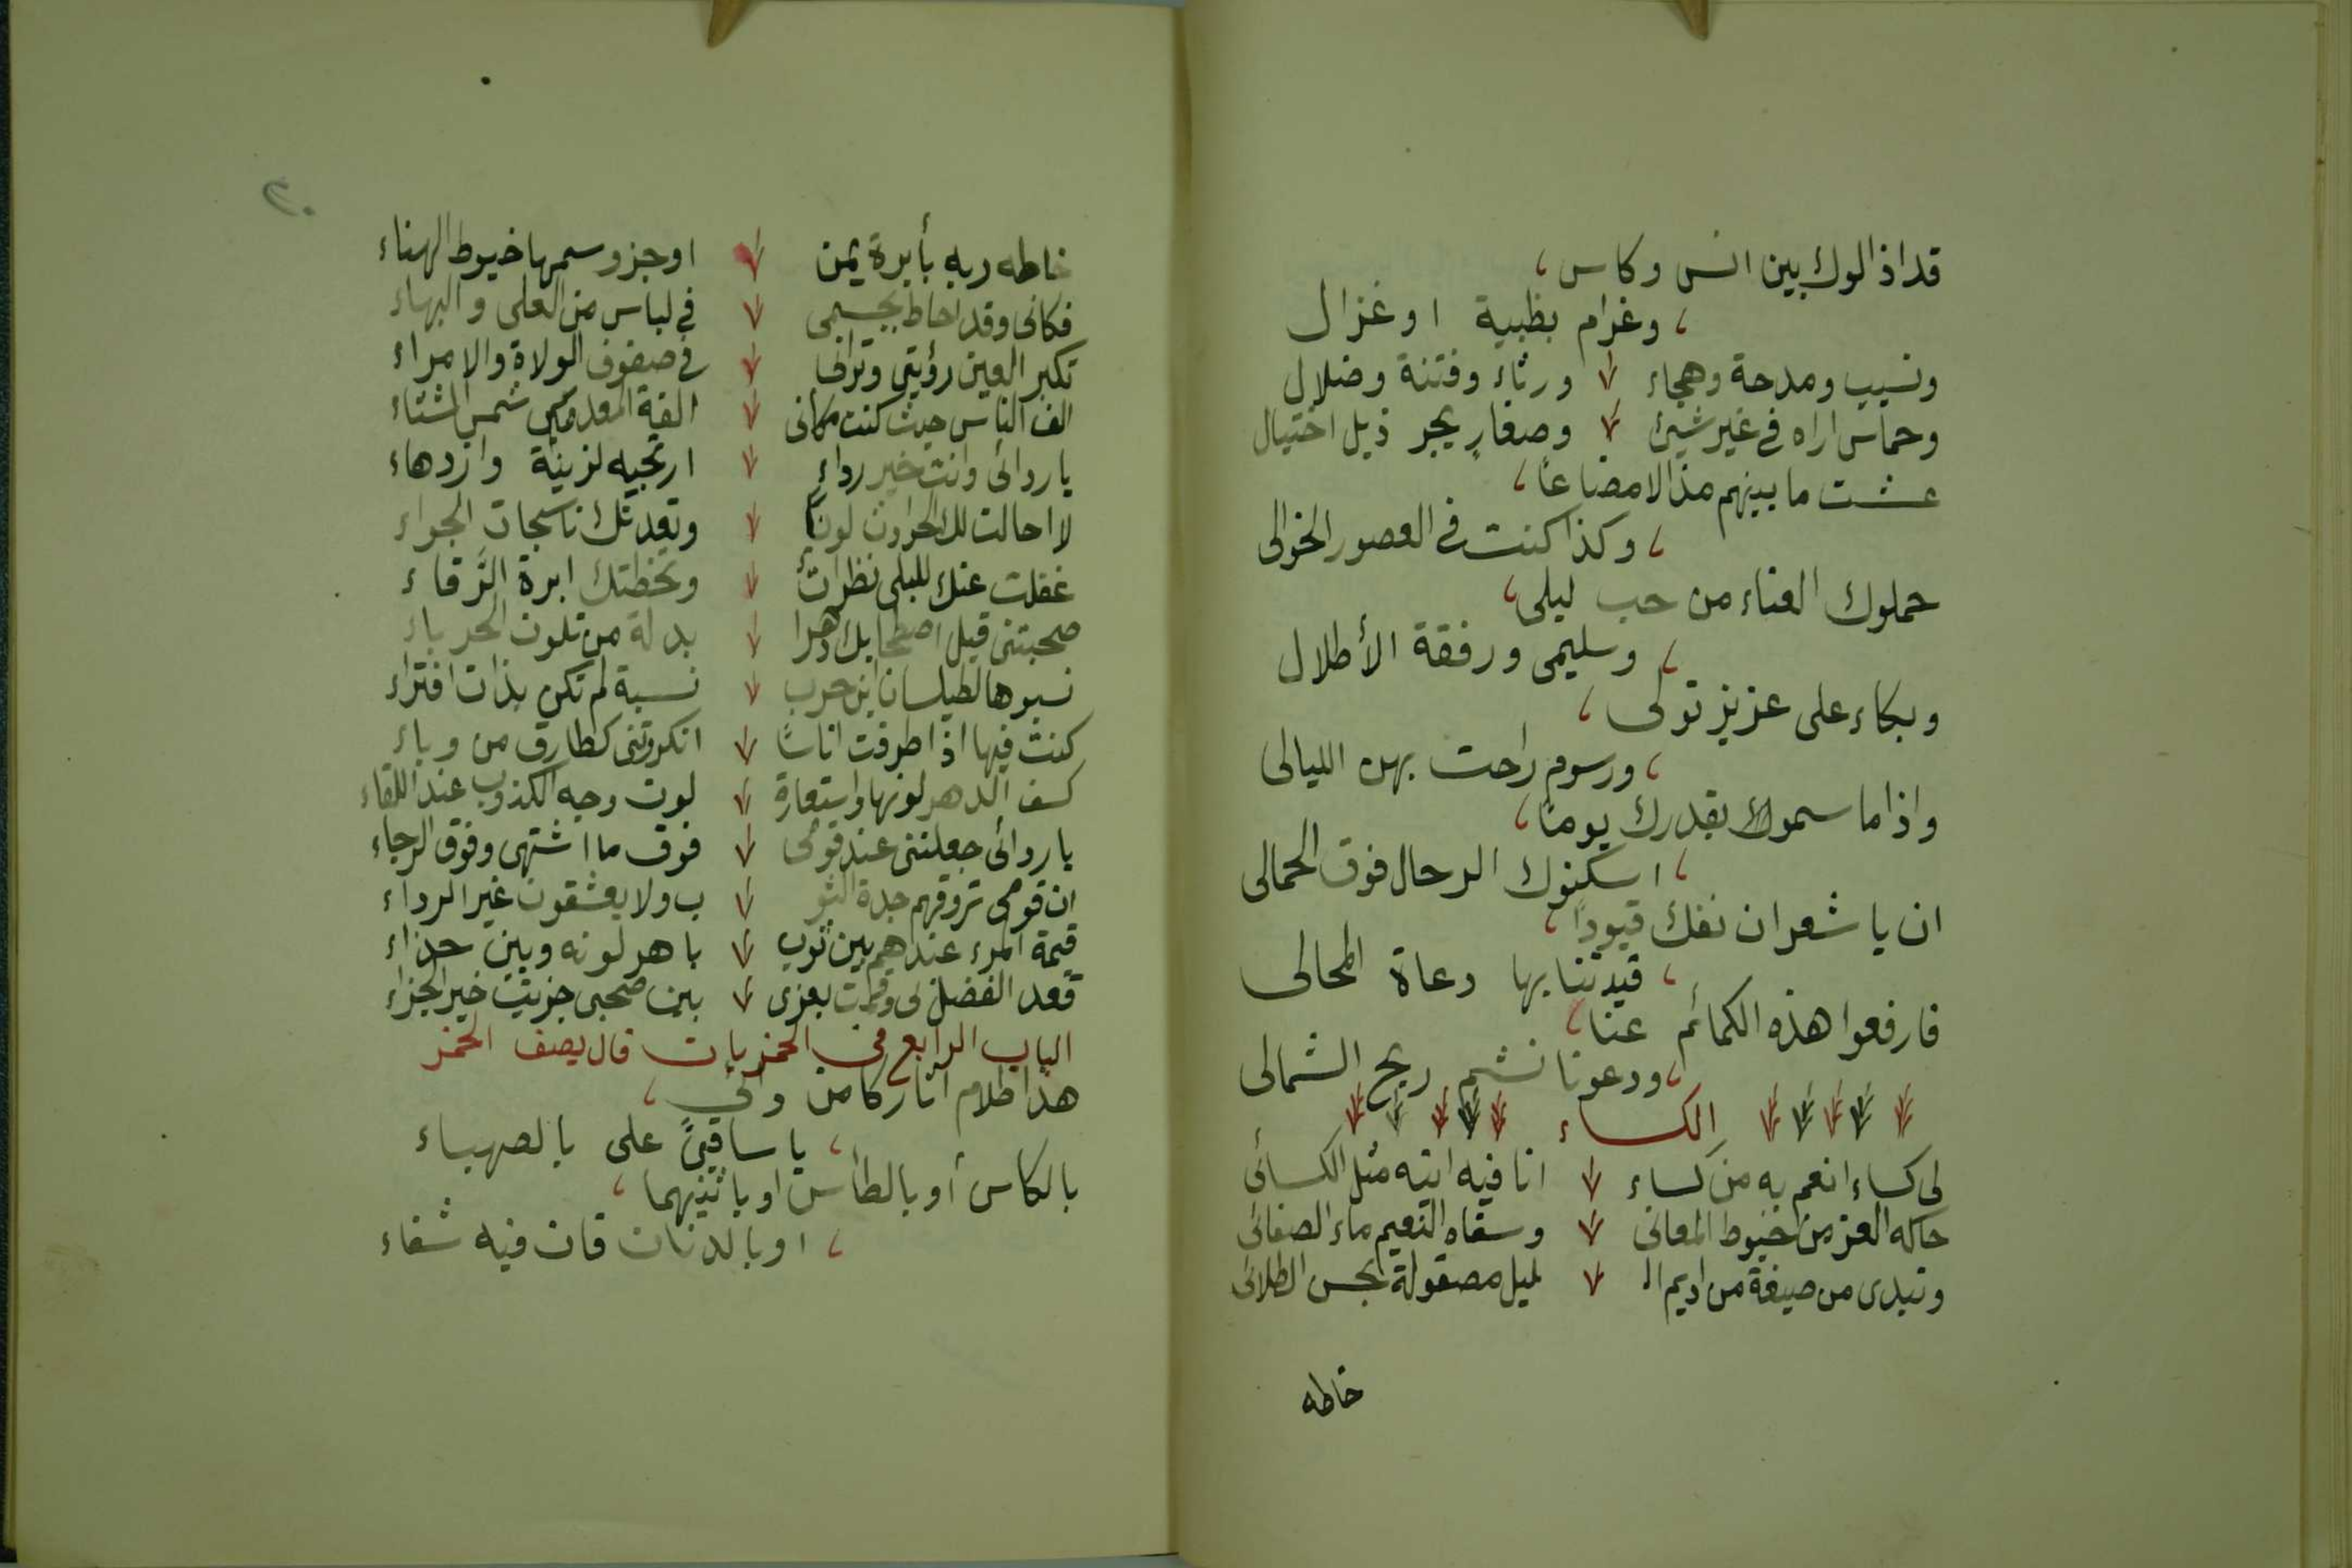 قد اذالوك بين انس وكاس،
، وغرام بظبية او غزال
ونسيب ومدحة وهجاء ورثاء وفتنة وضلال
وحماس اراه في غير شيئ وصغار يجر ذيل اختيال
عشت ما بينهم مذالا مضاعا،
، وكذا كنت في العصور الخوالى
حملوك العناء من حب ليلى،
، وسليمى ورفقة الأطلال
وبكاء على عزيز تولى،
، ورسوم راحت بهن الليالى
واذا ما سموا بقدرك يوما،
، اسكنوك الرحال فوق الجمالى
ان يا شعر ان نفك قيوداً،
، قيدتنا بها دعاة المحالى
فارفعوا هذه الكمائم عنا،
، ودعونا نشم ريح الشمالى
الكساء
لى كساء انعم به من كساء انا فيه اتيه مثل الكسائى
حاكه العز من خيوط المعانى وسقاه النعيم ماء الصفائى
وتبدى من صبغة من اديم ال ليل مصقولة بحسن الطلائى
خاطه
٢٠
خاطه ربه بأبرة يمن اوجزو سمها خيوط الهناء
فكانى وقد احاط بجسمى في لباس من العلى والبهاء
تكبر العين رؤيتي وترانى في صفوف الولاة والامراء
الف الناس حيث كنت مكانى الفة المعدمين شمس الشتاء
يا ردائى وانت خير رداء ارتجيه لزينة وازدهاء
لا احالت لك الحوادث لونا وتعدتك ناسجات الجواء
غفلت عنك للبلى نظرات وتخطتك ابرة الرقاء
صحبتنى قبل اصطحابك دهرا بدلة من تلون الحرباء
نسبوها لطيلسان ابن حرب نسبة لم تكن بذات افتراء
كنت فيها اذا طرقت اناسا انكرونى كطارق من وباء
كسف الدهر لونها واستعارة لون وجه الكذوب عند اللقاء
يا ردائى جعلتنى عند قومى فوق ما اشتهى وفوق الرجاء
ان قومى تروقهم جدة الثو ب ولا يعشقون غير الرداء
قيمة المرء عندهم بين ثوب باهر لونه وبين حذاء
قعد الفضل لى وقمت بعزى بين صحبى جزيت خير الجزاء
الباب الرابع في الخمريات قال يصف الخمر
هذا ظلام اثار كامن دائى،
، يا ساقيىَّ على بالصهباء
بالكاس أو بالطاس او باثنيهما،
، او بالدنان فان فيه شفاء